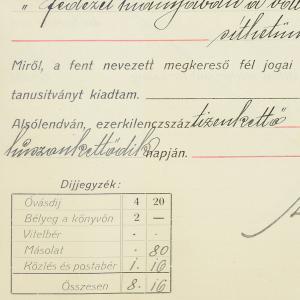 „ fedezet hiányában a
Miről, a fent nevezett megkereső fél jogai
tanusitványt kiadtam.
Alsólendván, ezerkilencszáz tizenkettő
huszonkettődik napján.
Díjjegyzék:
Óvásdíj 4 20
Bélyeg a könyvön 2 —
Vitelbér - -
Másolat - 80
Közlés és postabér 1. 16
Összesen 8. 16